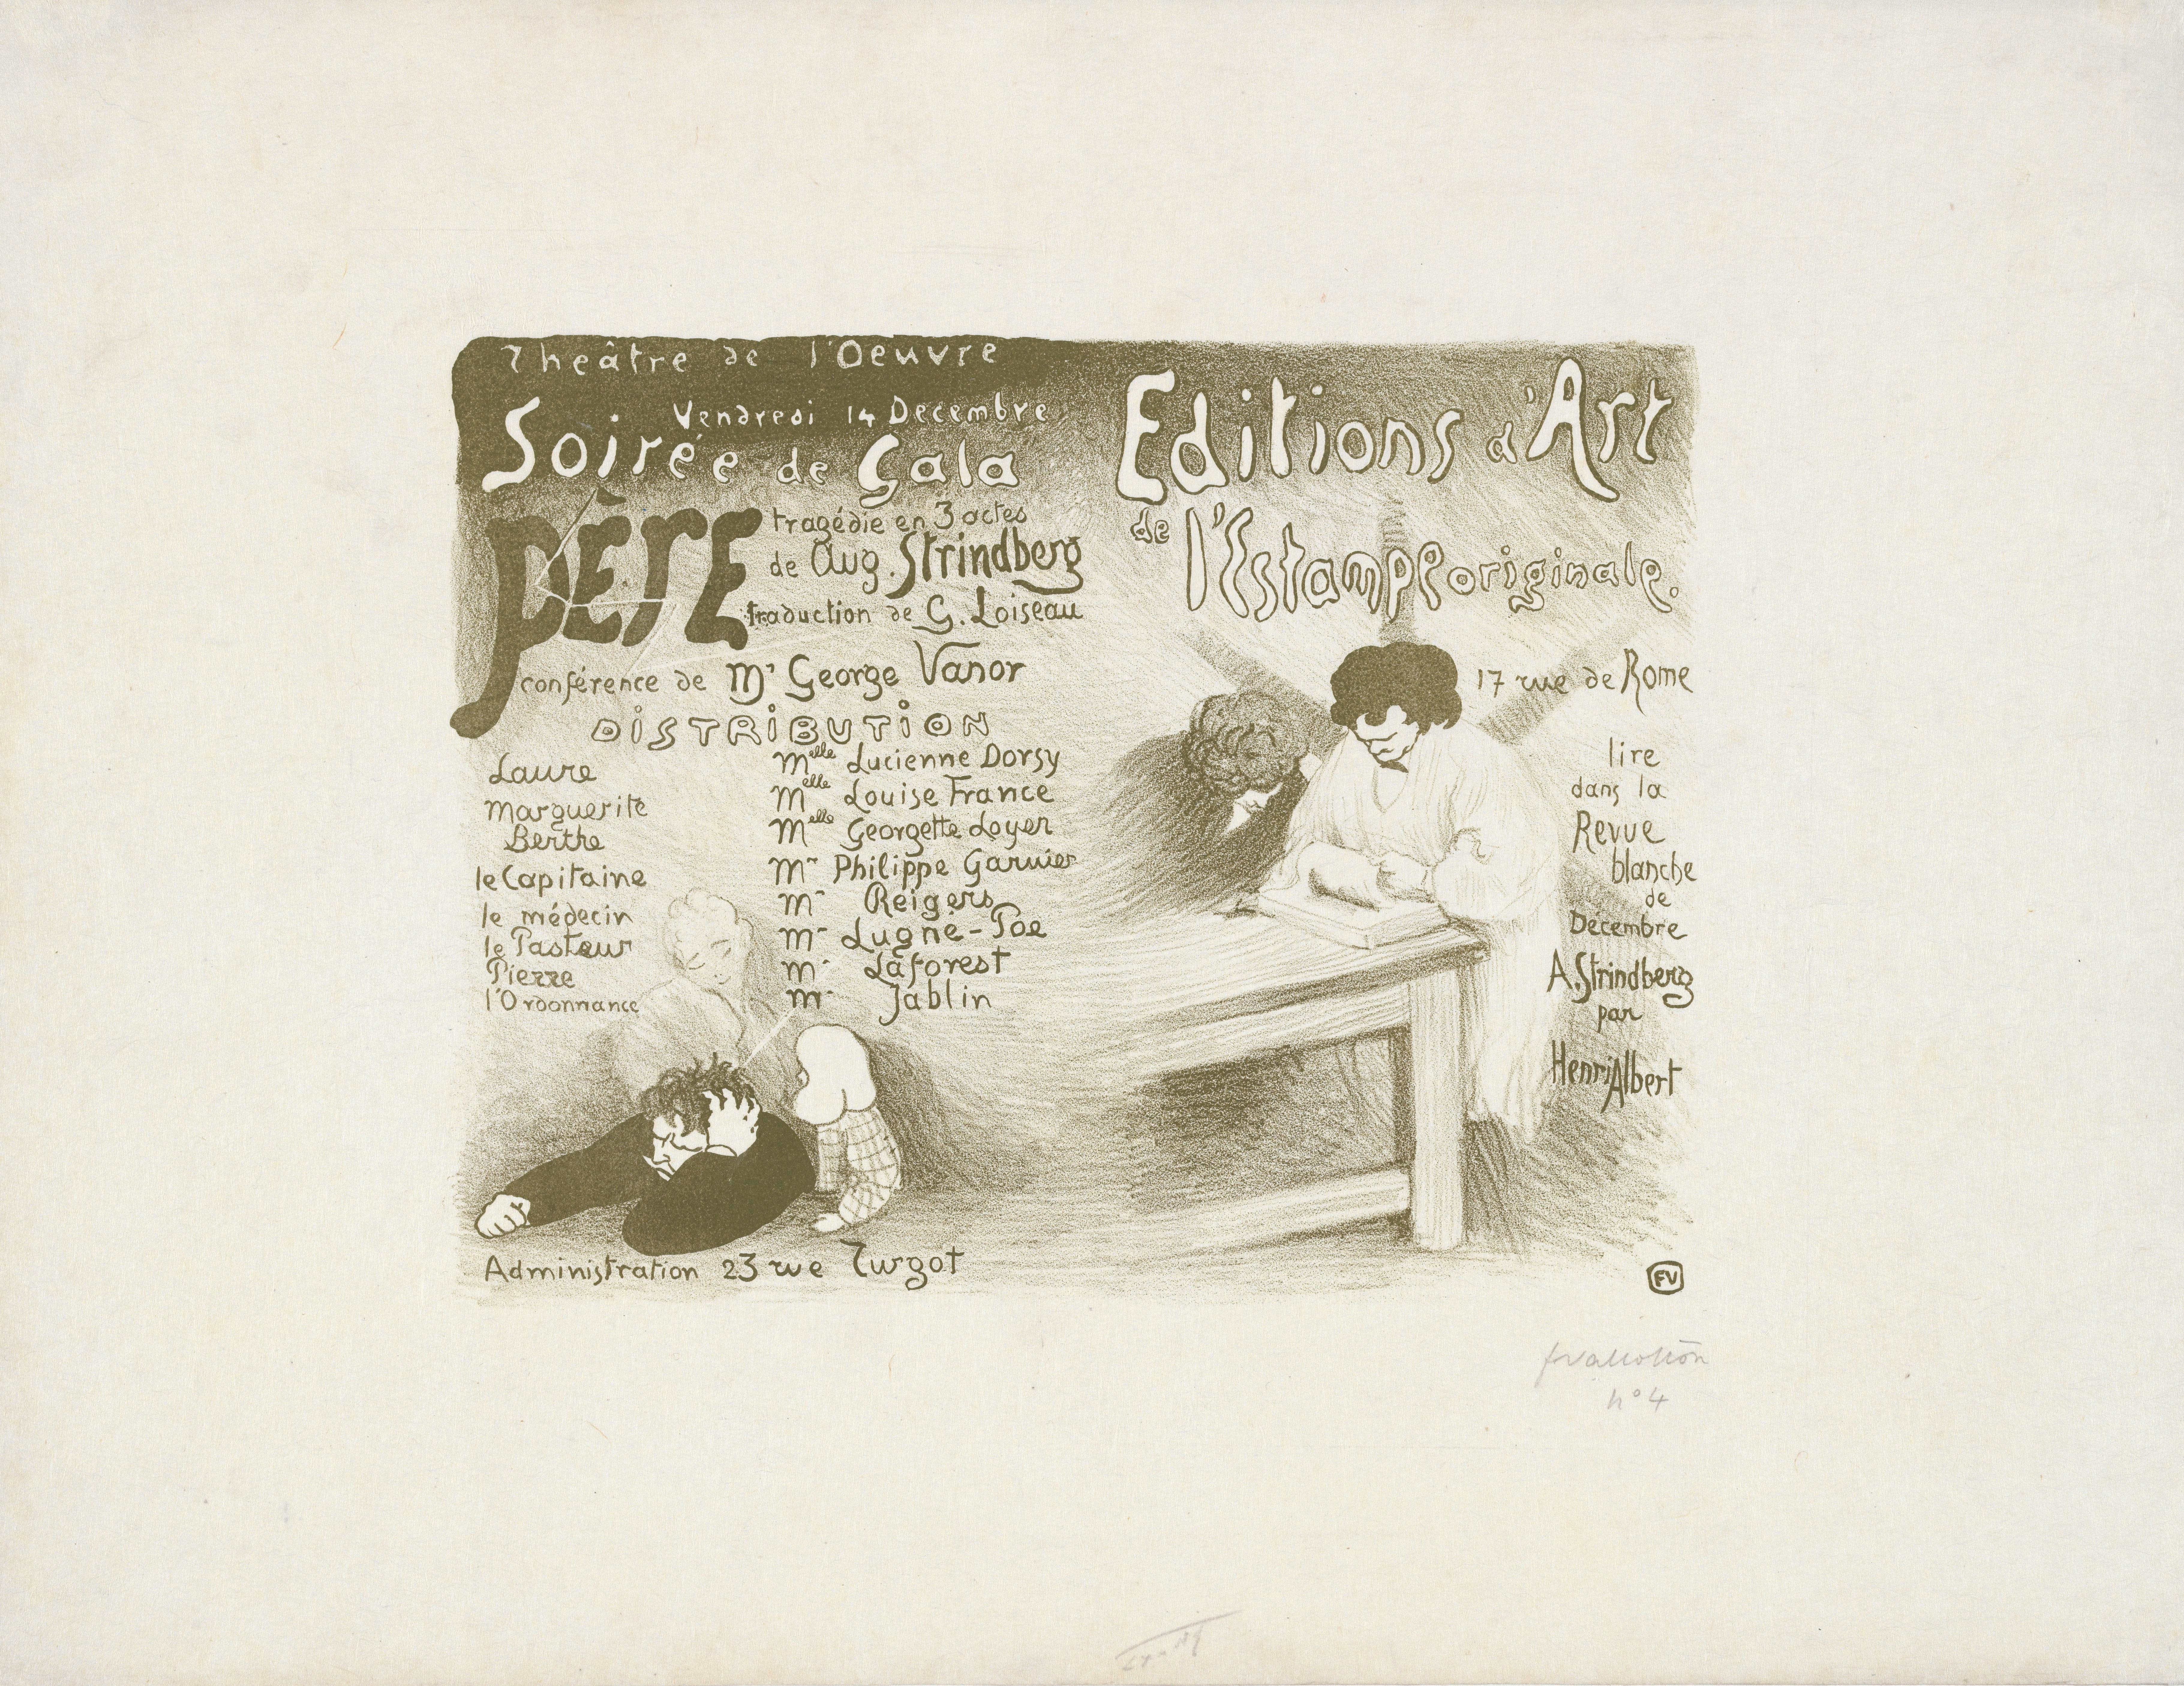 Theâtre de l'Oeuvre
Vendredi 14 Decembre
Soirée de Gala
PÈRE
tragédie en 3 actes
de Aug. Strindberg
traduction de G. Loiseau
conférence de Mr George Vanor
DISTRIBUTION
Laure Melle Lucienne Dorsy
Marguerite Melle Louise France
Berthe Melle Georgette Loyer
le Capitaine Mr Philippe Garnier
le médecin Mr Reigers
le Pasteur Mr Lugné-Poe
Pierre Mr Laforest
l'Ordonnance Mr Jablin
Administration 23 rue Turgot
Editions d'Art
de l'Estampe originale.
17 rue de Rome
lire
dans la
Revue
blanche
de
Décembre
A. Strindberg
par
Henri Albert
FV
fvallotton
n° 4